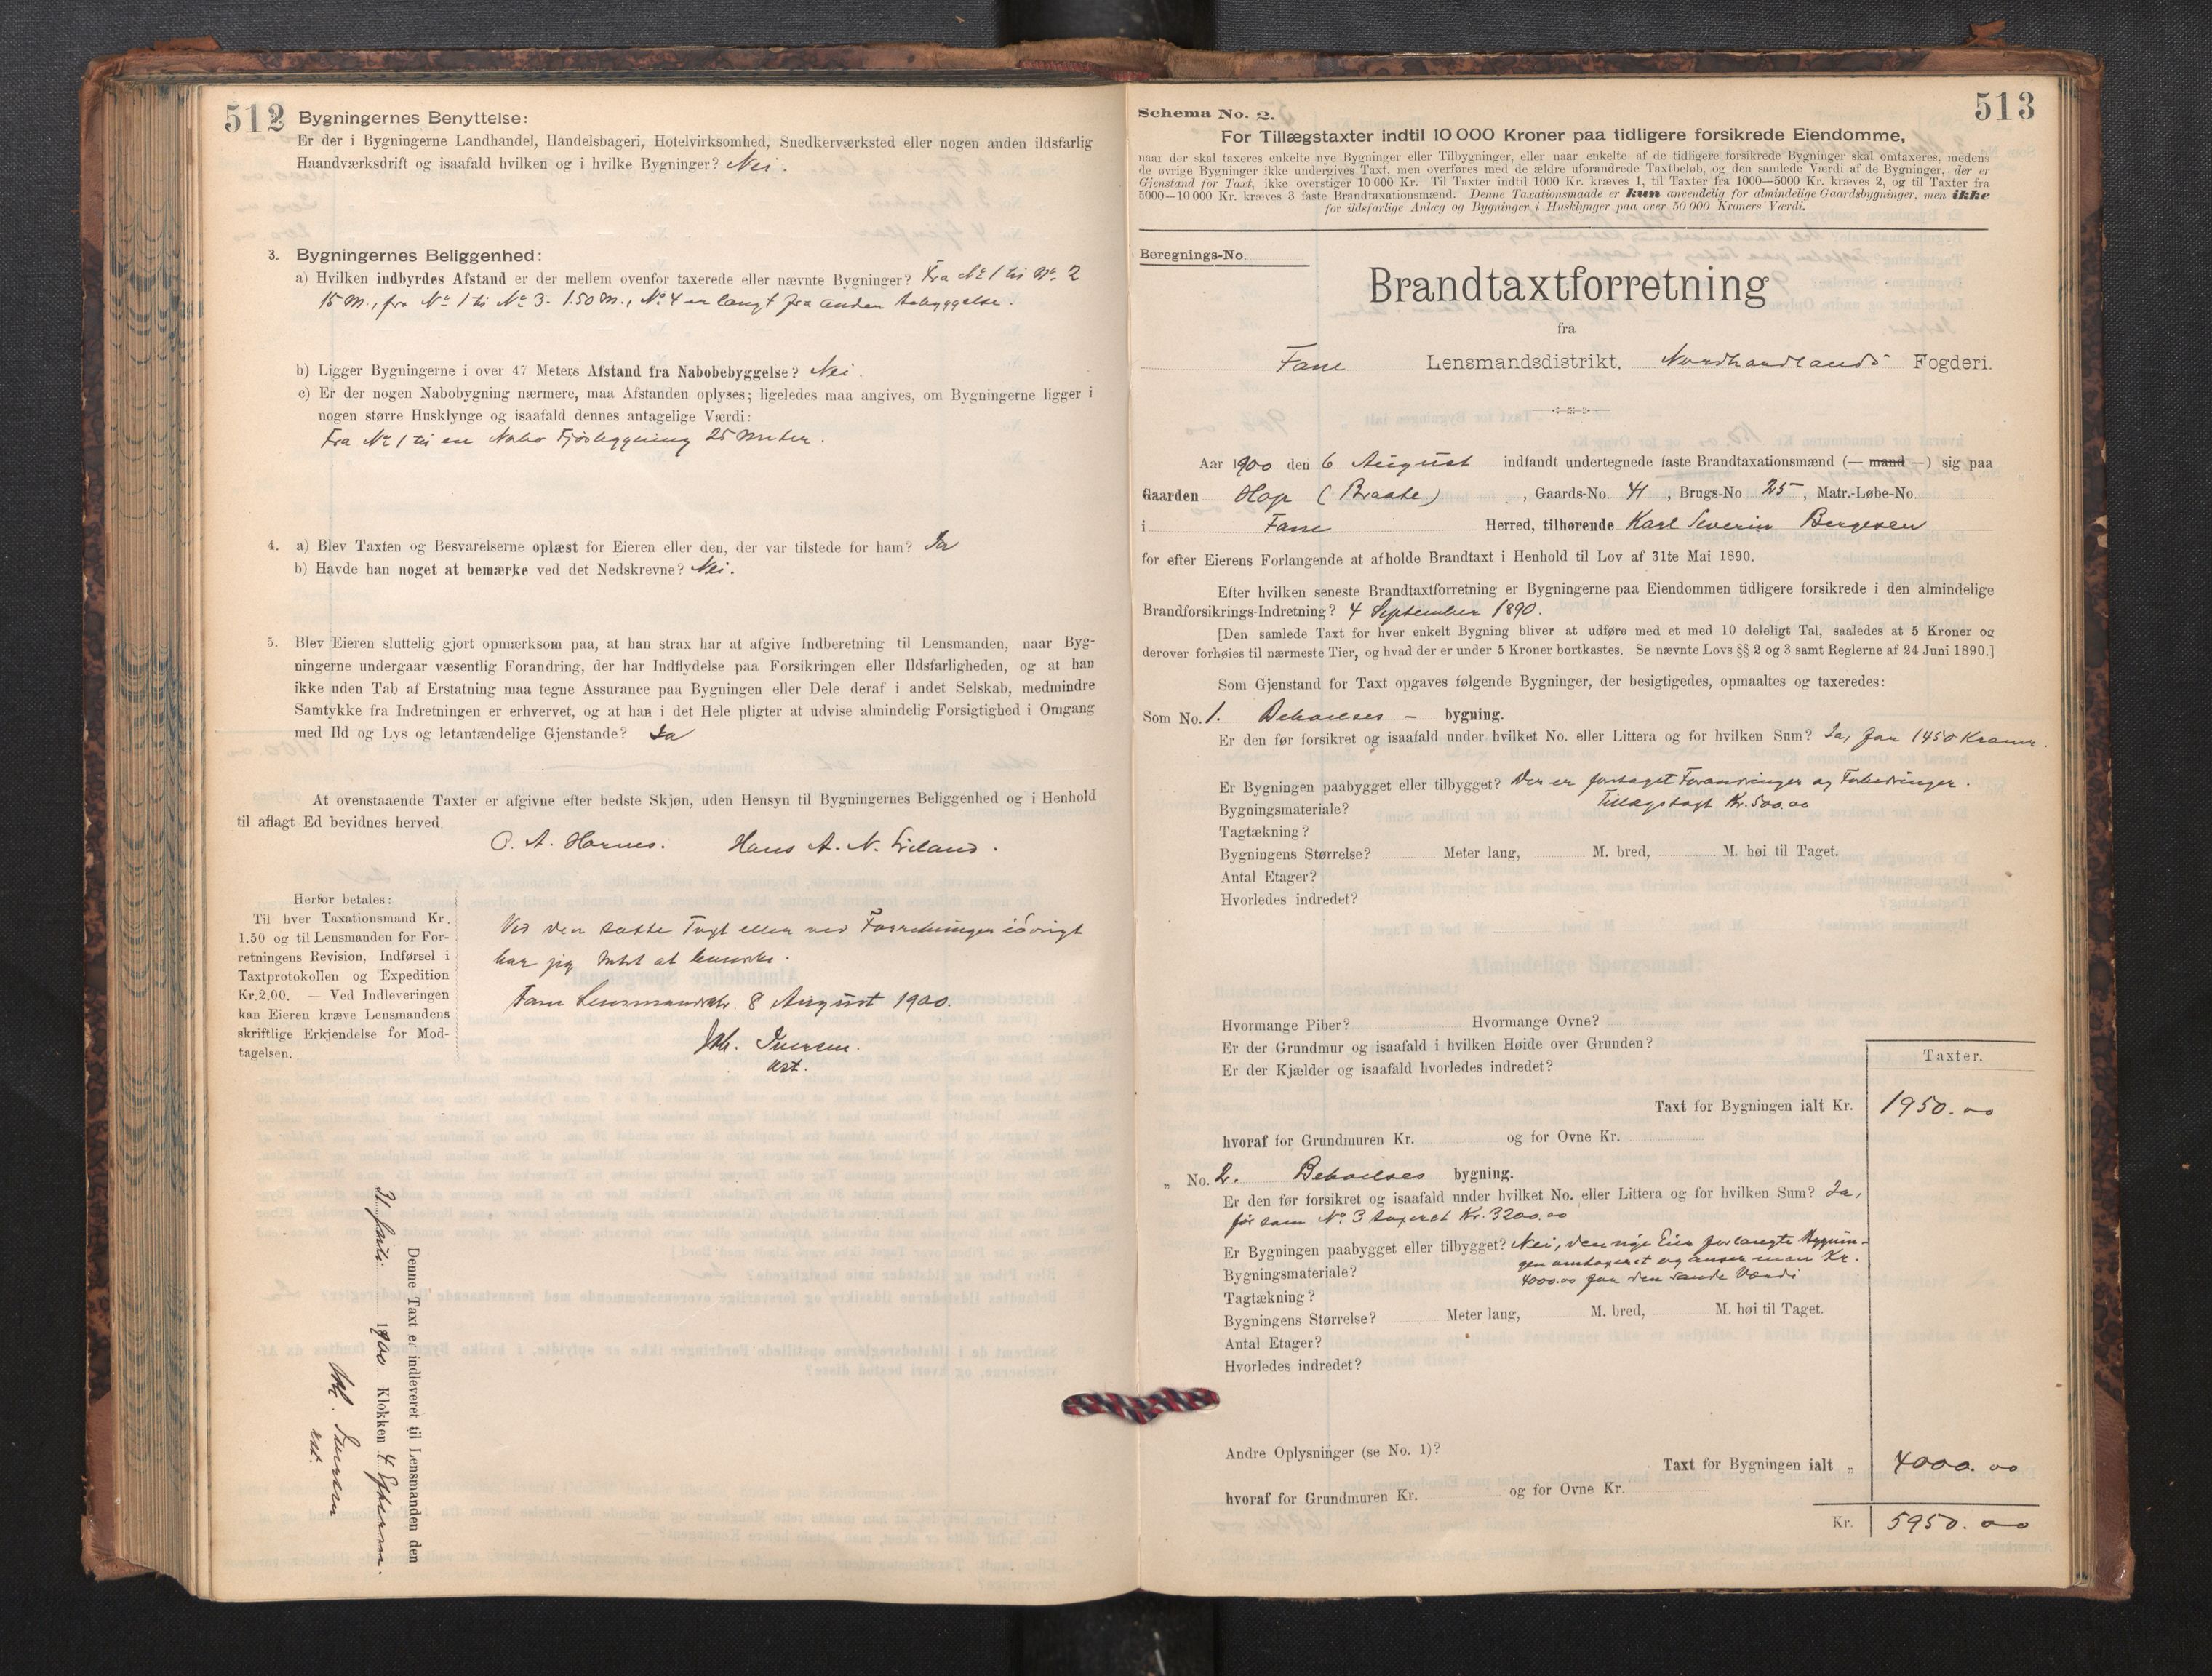 512
Bygningernes Benyttelse:
Er der i Bygningerne Landhandel, Handelsbageri, Hotelvirksomhed, Snedkerværksted eller nogen anden ildsfarlig
Haandværksdrift og isaafald hvilken og i hvilke Bygninger? Nei.
3. Bygningernes Beliggenhed:
a) Hvilken indbyrdes Afstand er der mellem ovenfor taxerede eller nævnte Bygninger? Fra No 1 til No. 2
15 M., fra No 1 til No 3. 1.50 M., No 4 er langt fra anden bebyggelse.
b) Ligger Bygningerne i over 47 Meters Afstand fra Nabobebyggelse? Nei.
c) Er der nogen Nabobygning nærmere, maa Afstanden oplyses; ligeledes maa angives, om Bygningerne ligger i
nogen større Husklynge og isaafald dennes antagelige Værdi:
Fra No 1 til en Nabo Fjøsbygning 25 Meter.
4. a) Blev Taxten og Besvarelserne oplæst for Eieren eller den, der var tilstede for ham? Ja
b) Havde han noget at bemærke ved det Nedskrevne? Nei.
5. Blev Eieren sluttelig gjort opmærksom paa, at han strax har at afgive Indberetning til Lensmanden, naar Byg-
ningerne undergaar væsentlig Forandring, der har Indflydelse paa Forsikringen eller Ildsfarligheden, og at han
ikke uden Tab af Erstatning maa tegne Assurance paa Bygningen eller Dele deraf i andet Selskab, medmindre
Samtykke fra Indretningen er erhvervet, og at han i det Hele pligter at udvise almindelig Forsigtighed i Omgang
med Ild og Lys og letantændelige Gjenstande? Ja
At ovenstaaende Taxter er afgivne efter bedste Skjøn, uden Hensyn til Bygningernes Beliggenhed og i Henhold
til aflagt Ed bevidnes herved.
O. A. Hornes. Hans A. N.
Herfor betales:
Til hver Taxationsmand Kr.
1.50 og til Lensmanden for For-
retningens Revision, Indførsel i
Taxtprotokollen og Expedition
Kr. 2.00. — Ved Indleveringen
kan Eieren kræve Lensmandens
skriftlige Erkjendelse for Mod-
tagelsen.
Ved den satte Taxt eller ved Forretningen iøvrigt
har jeg Intet at bemærke.
Fane Lensmandsktr. 8 August 1900.
Joh. Iversen.
kst.
Denne Taxt er indleveret til Lensmanden den
31 Juli 1900 Klokken 4 Efterm.
Joh. Iversen
kst.
513
Schema No. 2.
For Tillægstaxter indtil 10 000 Kroner paa tidligere forsikrede Eiendomme,
naar der skal taxeres enkelte nye Bygninger eller Tilbygninger, eller naar enkelte af de tidligere forsikrede Bygninger skal omtaxeres, medens
de øvrige Bygninger ikke undergives Taxt, men overføres med de ældre uforandrede Taxtbeløb, og den samlede Værdi af de Bygninger, der er
Gjenstand for Taxt, ikke overstiger 10 000 Kr. Til Taxter indtil 1000 Kr. kræves 1, til Taxter fra 1000—5000 Kr. kræves 2, og til Taxter fra
5000—10 000 Kr. kræves 3 faste Brandtaxationsmænd. Denne Taxationsmaade er kun anvendelig for almindelige Gaardsbygninger, men ikke
for ildsfarlige Anlæg og Bygninger i Husklynger paa over 50 000 Kroners Værdi.
Beregnings-No.
Brandtaxtforretning
fra
Fane Lensmandsdistrikt, Nordhordlands Fogderi.
Aar 1900 den 6 August indfandt undertegnede faste Brandtaxationsmænd (— mand —) sig paa
Gaarden Hop (Braate), Gaards-No. 41, Brugs-No 25, Matr.-Løbe-No.
i Fane Herred, tilhørende Karl Severin Bergesen
for efter Eierens Forlangende at afholde Brandtaxt i Henhold til Lov af 31te Mai 1890.
Efter hvilken seneste Brandtaxtforretning er Bygningerne paa Eiendommen tidligere forsikrede i den almindelige
Brandforsikrings-Indretning? 4 September 1890.
[Den samlede Taxt for hver enkelt Bygning bliver at udføre med et med 10 deleligt Tal, saaledes at 5 Kroner og
derover forhøies til nærmeste Tier, og hvad der er under 5 Kroner bortkastes. Se nævnte Lovs §§ 2 og 3 samt Reglerne af 24 Juni 1890.]
Som Gjenstand for Taxt opgaves følgende Bygninger, der besigtigedes, opmaaltes og taxeredes:
Som No. 1. Beboelses - bygning.
Er den før forsikret og isaafald under hvilket No. eller Littera og for hvilken Sum? Ja, for 1450 Kroner.
Er Bygningen paabygget eller tilbygget? Der er foretaget Forandringer og Forbedringer.
Bygningsmateriale? Tillægstaxt Kr. 500.00
Tagtækning?
Bygningens Størrelse? Meter lang, M. bred, M. høi til Taget.
Antal Etager?
Hvorledes indredet?
Hvormange Piber? Hvormange Ovne?
Er der Grundmur og isaafald i hvilken Høide over Grunden?
Er der Kjælder og isaafald hvorledes indredet?
Taxter.
Taxt for Bygningen ialt Kr. 1950.00
hvoraf for Grundmuren Kr. og for Ovne Kr.
„ No. 2. Beboelses bygning.
Er den før forsikret og isaafald under hvilket No. eller Littera og for hvilken Sum? Ja,
før som No. 3 taxeret Kr. 3200.00
Er Bygningen paabygget eller tilbygget? Nei, den nye Eier forlangte Bygnin-
gen omtaxeret og anser man Kr.
Bygningsmateriale? 4000.00 for den sande Værdi
Tagtækning?
Bygningens Størrelse? Meter lang, M. bred, M. høi til Taget.
Antal Etager?
Hvorledes indredet?
Andre Oplysninger (se No. 1)?
Taxt for Bygningen ialt „ 4000.00
hvoraf for Grundmuren Kr. og for Ovne Kr.
Kr. 5950.00